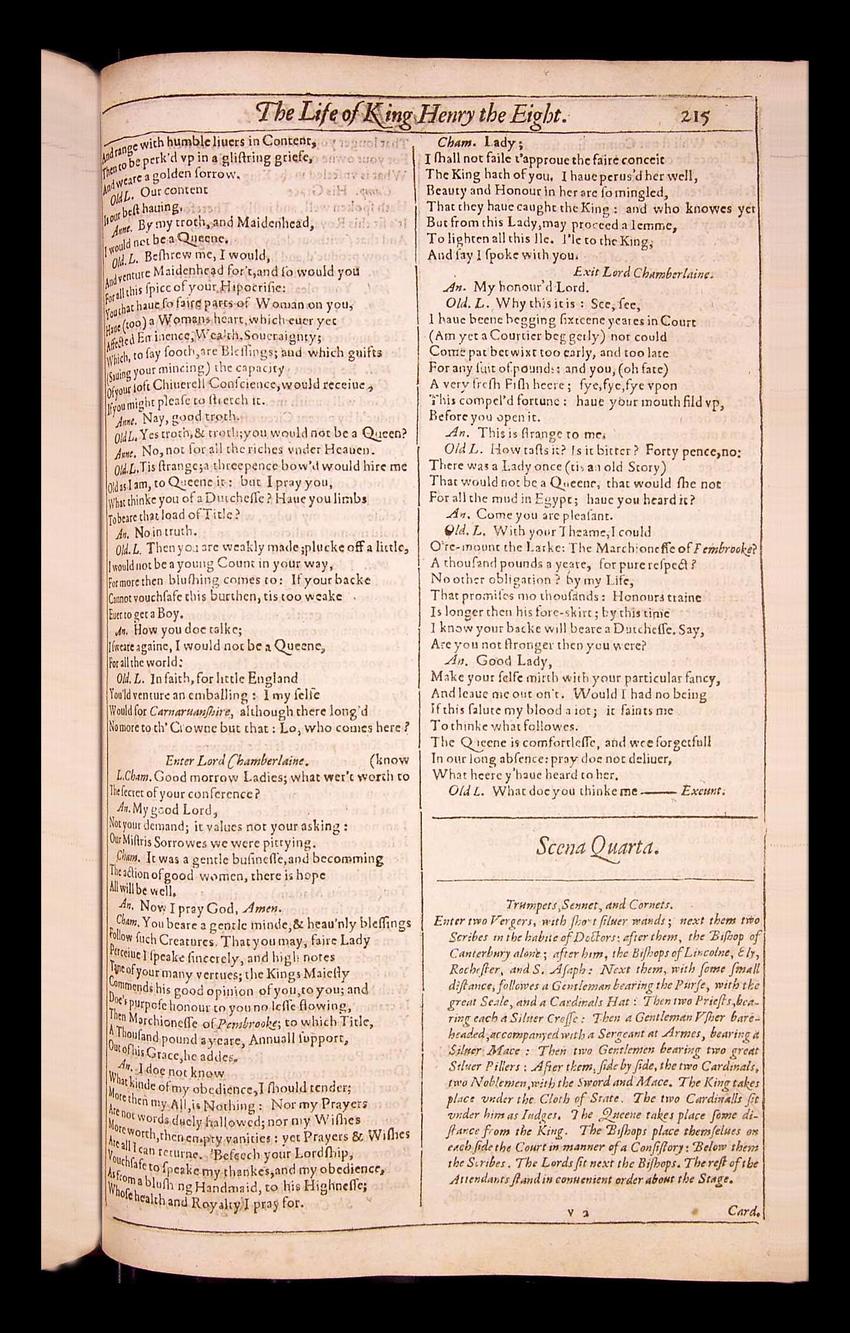 The Life of King Henry the Eight. 215
And range with humble liuers in Content,
Then to be perk'd vp in a glistring griefe,
And weare a golden sorrow.
Old L. Our content
Is our best hauing.
Anne. By my troth, and Maidenhead,
I would not be a Queene.
Old. L. Beshrew me, I would,
And venture Maidenhead for't, and so would you
For all this spice of your Hipocrisie:
You that haue so faire parts of Woman on you,
Haue (too) a Womans heart, which euer yet
Affected Eminence, Wealth, Soueraignty;
Which, to say sooth, are Blessings; and which guifts
(Sauing your mincing) the capacity
Of your soft Chiuerell Conscience, would receiue,
If you might please to stretch it.
Anne. Nay, good troth.
Old L. Yes troth, & troth; you would not be a Queen?
Anne. No, not for all the riches vnder Heauen.
Old. L. Tis strange; a threepence bow'd would hire me
Old as I am, to Queene it: but I pray you,
What thinke you of a Dutchesse? Haue you limbs
To beare that load of Title?
An. No in truth.
Old. L. Then you are weakly made; plucke off a little,
I would not be a young Count in your way,
For more then blushing comes to: If your backe
Cannot vouchsafe this burthen, tis too weake
Euer to get a Boy.
An. How you doe talke;
I sweare againe, I would not be a Queene,
For all the world:
Old. L. In faith, for little England
You'ld venture an emballing: I my selfe
Would for Carnaruanshire, although there long'd
No more to th' Crowne but that: Lo, who comes here?
Enter Lord Chamberlaine. (know
L. Cham. Good morrow Ladies; what wer't worth to
The secret of your conference?
An. My good Lord,
Not your demand; it values not your asking:
Our Mistris Sorrowes we were pittying.
Cham. It was a gentle businesse, and becomming
The action of good women, there is hope
All will be well.
An. Now I pray God, Amen.
Cham. You beare a gentle minde, & heau'nly blessings
Follow such Creatures. That you may, faire Lady
Perceiue I speake sincerely, and high notes
Tane of your many vertues; the Kings Maiesty
Commends his good opinion of you, to you; and
Doe's purpose honour to you no lesse flowing,
Then Marchionesse of Pembrooke; to which Title,
A Thousand pound a yeare, Annuall support,
Out of his Grace, he addes.
An. I doe not know
What kinde of my obedience, I should tender;
More then my All, is Nothing: Nor my Prayers
Are not words duely hallowed; nor my Wishes
More worth, then empty vanities: yet Prayers & Wishes
Are all I can returne. 'Beseech your Lordship,
Vouchsafe to speake my thankes, and my obedience,
As from a blush ng Handmaid, to his Highnesse;
Whose health and Royalty I pray for.
Cham. Lady;
I shall not faile t'approue the faire conceit
The King hath of you. I haue perus'd her well,
Beauty and Honour in her are so mingled,
That they haue caught the King: and who knowes yet
But from this Lady, may proceed a Iemme,
To lighten all this Ile. I'le to the King,
And say I spoke with you.
Exit Lord Chamberlaine.
An. My honour'd Lord.
Old. L. Why this it is: See, see,
I haue beene begging sixteene yeares in Court
(Am yet a Courtier beggerly) nor could
Come pat betwixt too early, and too late
For any suit of pounds: and you, (oh fate)
A very fresh Fish heere; fye, fye, fye vpon
This compel'd fortune: haue your mouth fild vp,
Before you open it.
An. This is strange to me.
Old L. How tasts it? Is it bitter? Forty pence, no:
There was a Lady once (tis an old Story)
That would not be a Queene, that would she not
For all the mud in Egypt; haue you heard it?
An. Come you are pleasant.
Old. L. With your Theame, I could
O're-mount the Larke: The Marchionesse of Pembrooke?
A thousand pounds a yeare, for pure respect?
No other obligation? by my Life,
That promises mo thousands: Honours traine
Is longer then his fore-skirt; by this time
I know your backe will beare a Dutchesse. Say,
Are you not stronger then you were?
An. Good Lady,
Make your selfe mirth with your particular fancy,
And leaue me out on't. Would I had no being
If this salute my blood a iot; it faints me
To thinke what followes.
The Queene is comfortlesse, and wee forgetfull
In our long absence: pray doe not deliuer,
What heere y'haue heard to her.
Old L. What doe you thinke me —— Exeunt.
Scena Quarta.
Trumpets, Sennet, and Cornets.
Enter two Vergers, with short siluer wands; next them two
Scribes in the habite of Doctors: after them, the Bishop of
Canterbury alone; after him, the Bishops of Lincolne, Ely,
Rochester, and S. Asaph: Next them, with some small
distance, followes a Gentleman bearing the Purse, with the
great Seale, and a Cardinals Hat: Then two Priests, bea-
ring each a Siluer Crosse: Then a Gentleman Vsher bare-
headed, accompanyed with a Sergeant at Armes, bearing a
Siluer Mace: Then two Gentlemen bearing two great
Siluer Pillers: After them, side by side, the two Cardinals,
two Noblemen, with the Sword and Mace. The King takes
place vnder the Cloth of State. The two Cardinalls sit
vnder him as Iudges. The Queene takes place some di-
stance from the King. The Bishops place themselues on
each side the Court in manner of a Consistory: Below them
the Scribes. The Lords sit next the Bishops. The rest of the
Attendants stand in conuenient order about the Stage.
v 2 Card.